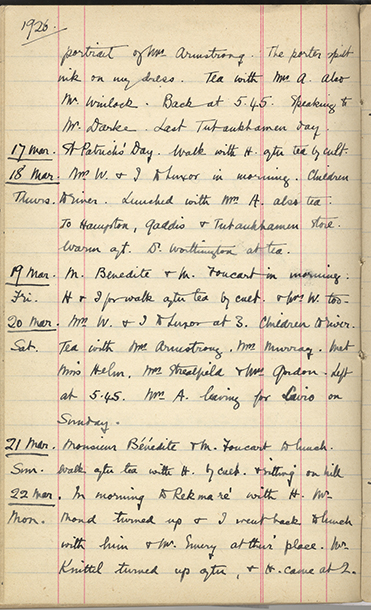 1926.
portrait of Mrs Armstrong. The porter spilt
ink on my dress. Tea with Mrs A. also
Mr Winlock. Back at 5.45. Speaking to
Mr Darke. Last Tutankhamen day.
17 Mar. St Patrick's Day. Walk with H. after tea by cult.
18 Mar. Mrs W. & I to Luxor in morning. Children
Thurs. to river. Lunched with Mrs A. also tea.
To Hampton, Gaddis & Tutankhamen store.
Warm aft. Dr Worthington at tea.
19 Mar. M. Bénédite & M. Foucart in morning.
Fri. H & I for walk after tea by cult. & Mrs W. too.
20 Mar. Mrs W. & I to Luxor at 3. Children to river.
Sat. Tea with Mrs Armstrong. Mrs Murray. Met
Miss Holm, Mrs Streatfeild & Mrs Gordon. Left
at 5.45. Mrs A. leaving for Cairo on
Sunday.
21 Mar. Monsieur Bénédite & M. Foucart to lunch.
Sun. Walk after tea with H. by cult. & sitting on hill
22 Mar. In morning to Rekmare with H. Mr
Mon. Mond turned up & I went back to lunch
with him & Mr. Emery at their place. Mr
Knittel turned up after, & H. came at 2.